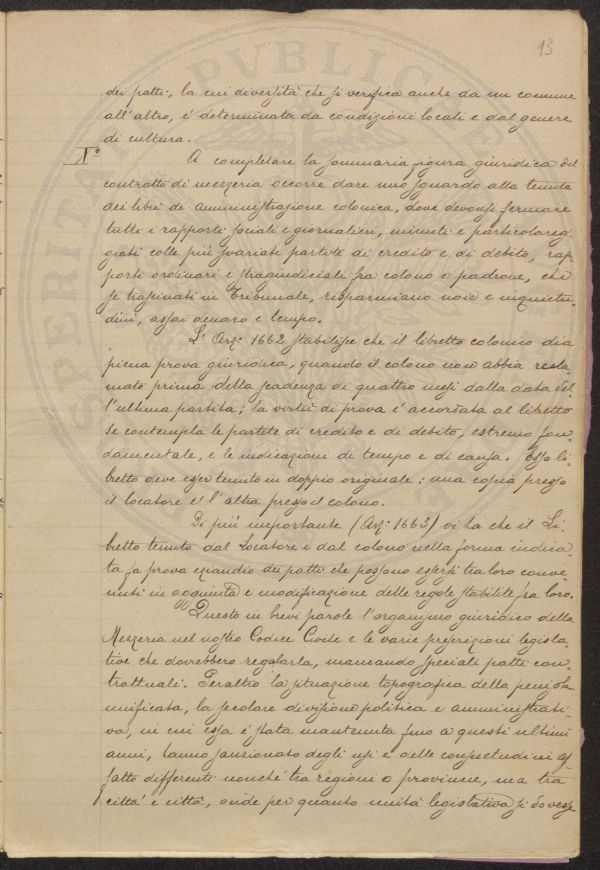 13
dei patti, la cui diversità che si verifica anche da un comune
all'altro, e' determinata da condizioni locali e dal genere
di cultura.
X°
A completare la sommaria figura giuridica del
contratto di mezzeria occorre dare uno sguardo alla tenuta
dei libri di amministrazione colonica, dove devonsi fermare
tutti i rapporti sociali e giornalieri, minuti e particolareg-
giati colle più svariate partite di credito e di debito, rap-
porti ordinari e stragiudiciali fra colono e padrone, che
se trascinati in Tribunale, risparmiano noie e inquietu-
dini, assai denaro e tempo.
L'Art: 1662 stabilisce che il libretto colonico dia
piena prova giuridica, quando il colono non abbia recla-
mato prima della scadenza di quattro mesi dalla data del-
l'ultima partita; la virtù di prova e' accordata al libretto
se contempla le partite di credito e di debito, estremo fon-
damentale, e le indicazioni di tempo e di causa. Esso li-
bretto deve esser tenuto in doppio originale: una copia presso
il locatore e l'altra presso il colono.
Di più importante (Art: 1663) vi ha che il Li-
bretto tenuto dal Locatore e dal colono nella forma indica-
ta fa prova eziandio dei patti che possono essersi tra loro conve-
nuti in aggiunta e modificazione delle regole stabilite fra loro.
Questo in brevi parole l'organismo giuridico della
Mezzeria nel nostro Codice Civile e le varie prescrizioni legisla-
tive che dovrebbero regolarla, mancando speciali patti con-
trattuali. Peraltro la situazione topografica della penisola
unificata, la secolare divisione politica e amministrati-
va, in cui essa e' stata mantenuta fino a questi ultimi
anni, hanno sanzionato degli usi e delle consuetudini af-
fatto differenti nonché tra regioni o provincie, ma tra
città e città, onde per quanto unità legislativa si dovesse